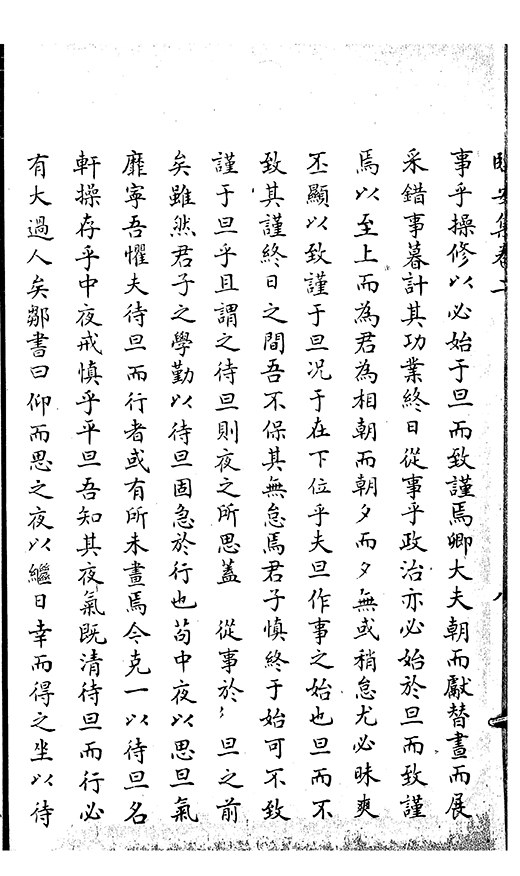 事乎操修以必始于旦而致謹焉卿大夫朝而獻替晝而展
采錯事暮計其功業終日從事乎政治亦必始於旦而致謹
焉以至上而為君為相朝而朝夕而夕無或稍怠尤必昧爽
丕顯以致謹于旦况于在下位乎夫旦作事之始也旦而不
致其謹終日之間吾不保其無怠焉君子慎終于始可不致
謹于旦乎且謂之待旦則夜之所思蓋　從事於〻旦之前
矣雖然君子之學勤以待旦固急於行也苟中夜以思旦氣
靡寧吾懼夫待旦而行者或有所未晝焉今克一以待旦名
軒操存乎中夜戒慎乎平旦吾知其夜氣既清待旦而行必
有大過人矣鄒書曰仰而思之夜以繼日幸而得之坐以待